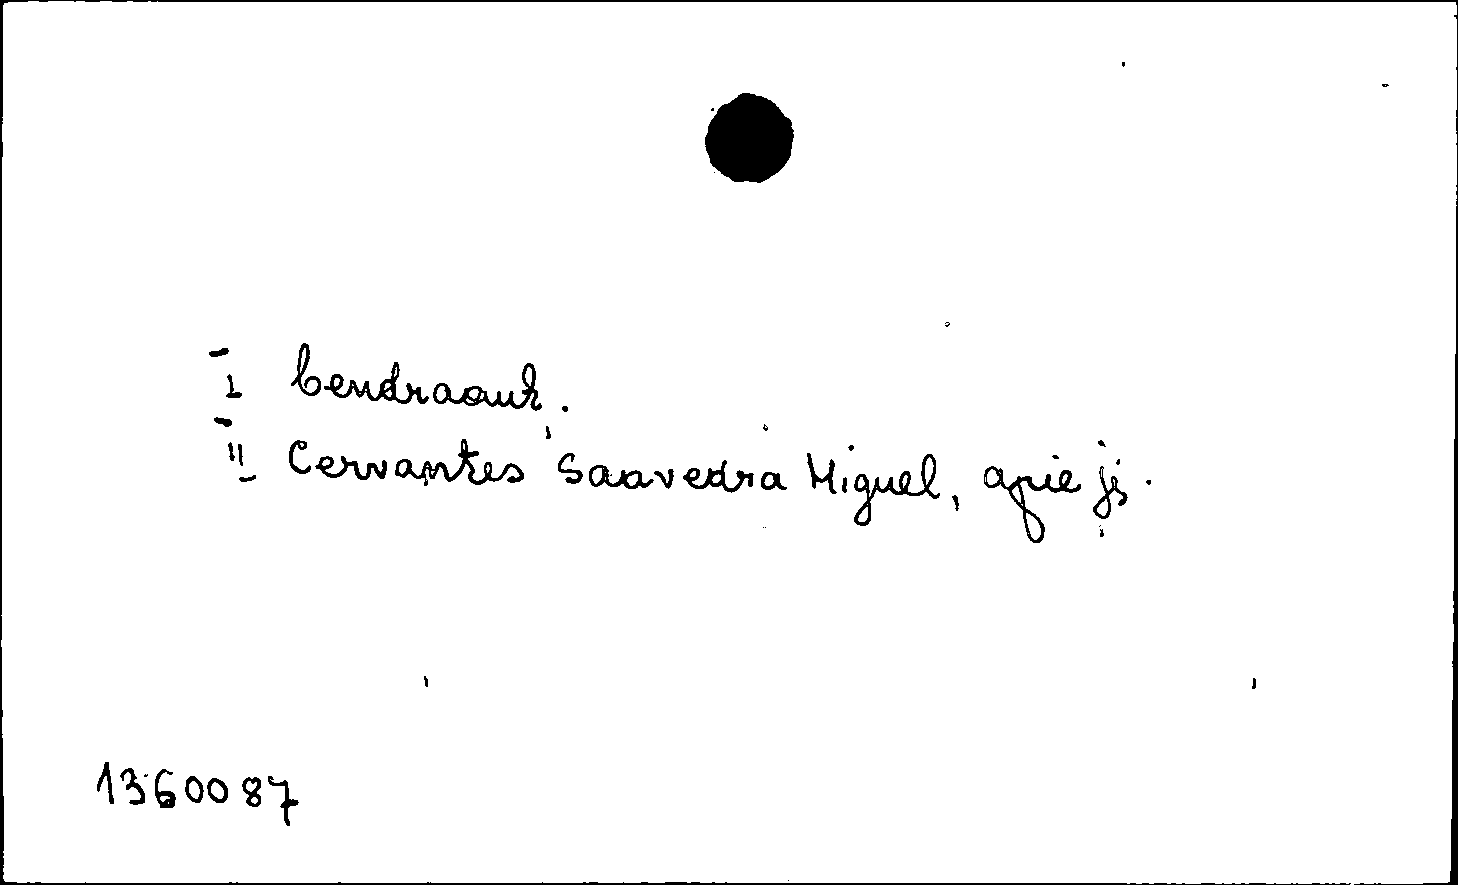 I bendraaut.
II Cervantes Saavedra Miguel, apie jį.
1360087